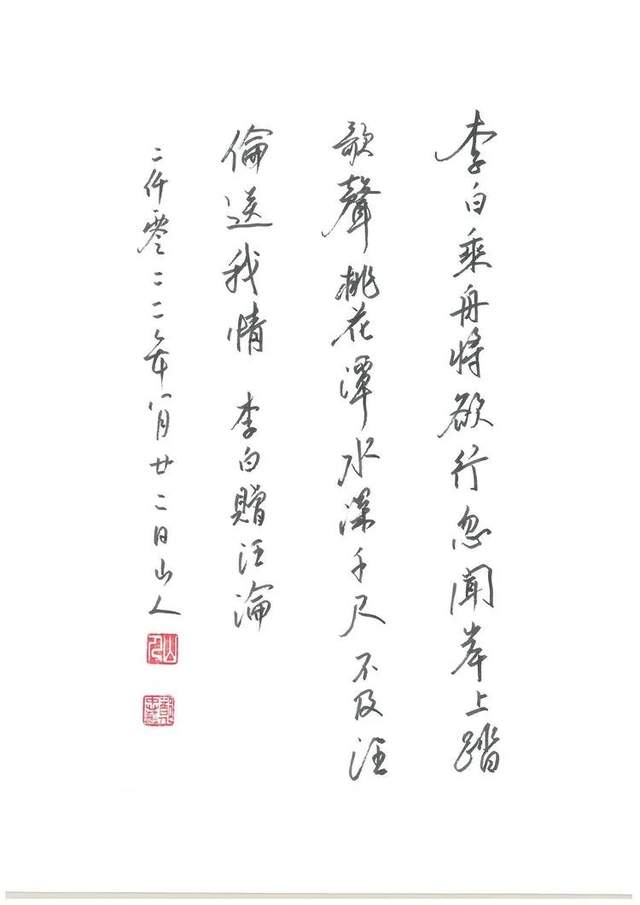 李白乘舟將欲行忽聞岸上踏
歌聲桃花潭水深千尺不及汪
倫送我情 李白贈汪淪
二仟零二二年八月廿二日山人
山人